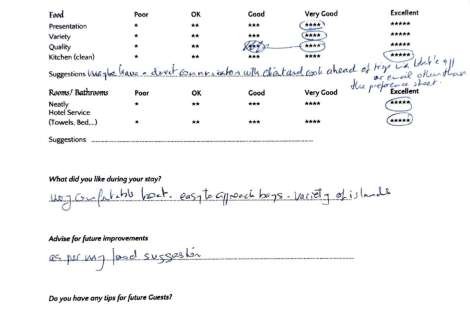 Food Poor OK Good Very Good Excellent
Presentation * ** *** **** *****
Variety * ** *** **** *****
Quality * ** *** **** *****
Kitchen (clean) * ** *** **** *****
Suggestions maybe have a direct communication with client and cook ahead of trips via
or email other than
the preference sheet.
Rooms/ Bathrooms Poor OK Good Very Good Excellent
Neatly * ** *** **** *****
Hotel Service
(Towels, Bed...) * ** *** **** *****
Suggestions
What did you like during your stay?
very comfortable boat. easy to approach boys. variety of islands
Advise for future improvements
as per my food suggestion
Do you have any tips for future Guests?